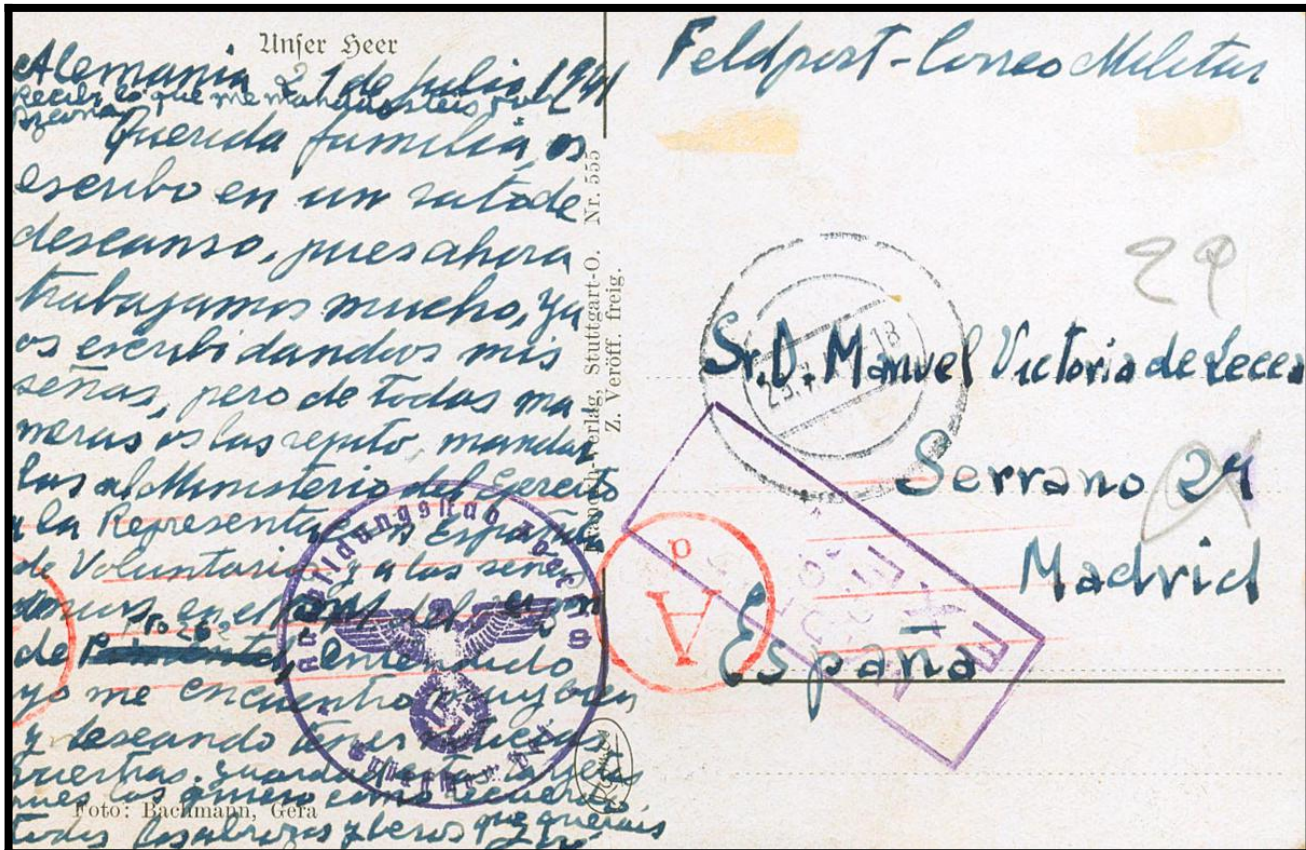 Unser Heer
Alemania 21 de Julio 1941
Recibí lo que me mandasteis
Querida familia, os
escribo en un rato de
descanso, pues ahora
trabajamos mucho, ya
os escribi dandoos mis
señas, pero de todas ma
neras os las repito, mandar
las al Ministerio del Ejercito
a la Representacion Española
de Voluntarios y a las señas
de
entendido
yo me encuentro muy bien
y deseando tener noticias
vuestras. guardad estas tarjetas
pues las quiero como recuerdo,
todos los abrazos y besos que querais
Foto: Bachmann, Gera
Verlag, Stuttgart-O. Nr. 555
Z. Veröff. freig.
Feldpost - Correo Militar
29
Sr. D. Manuel Victoria de Lecea
Serrano 29
Madrid
España
A
d